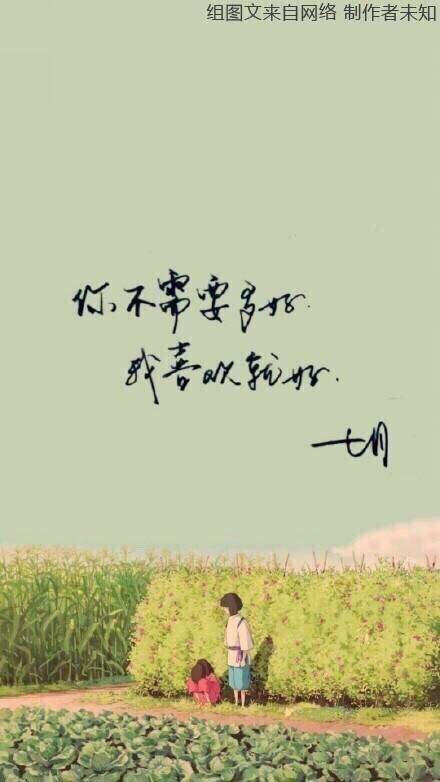 组图文来自网络 制作者未知
你不需要多好.
我喜欢就好.
一七月